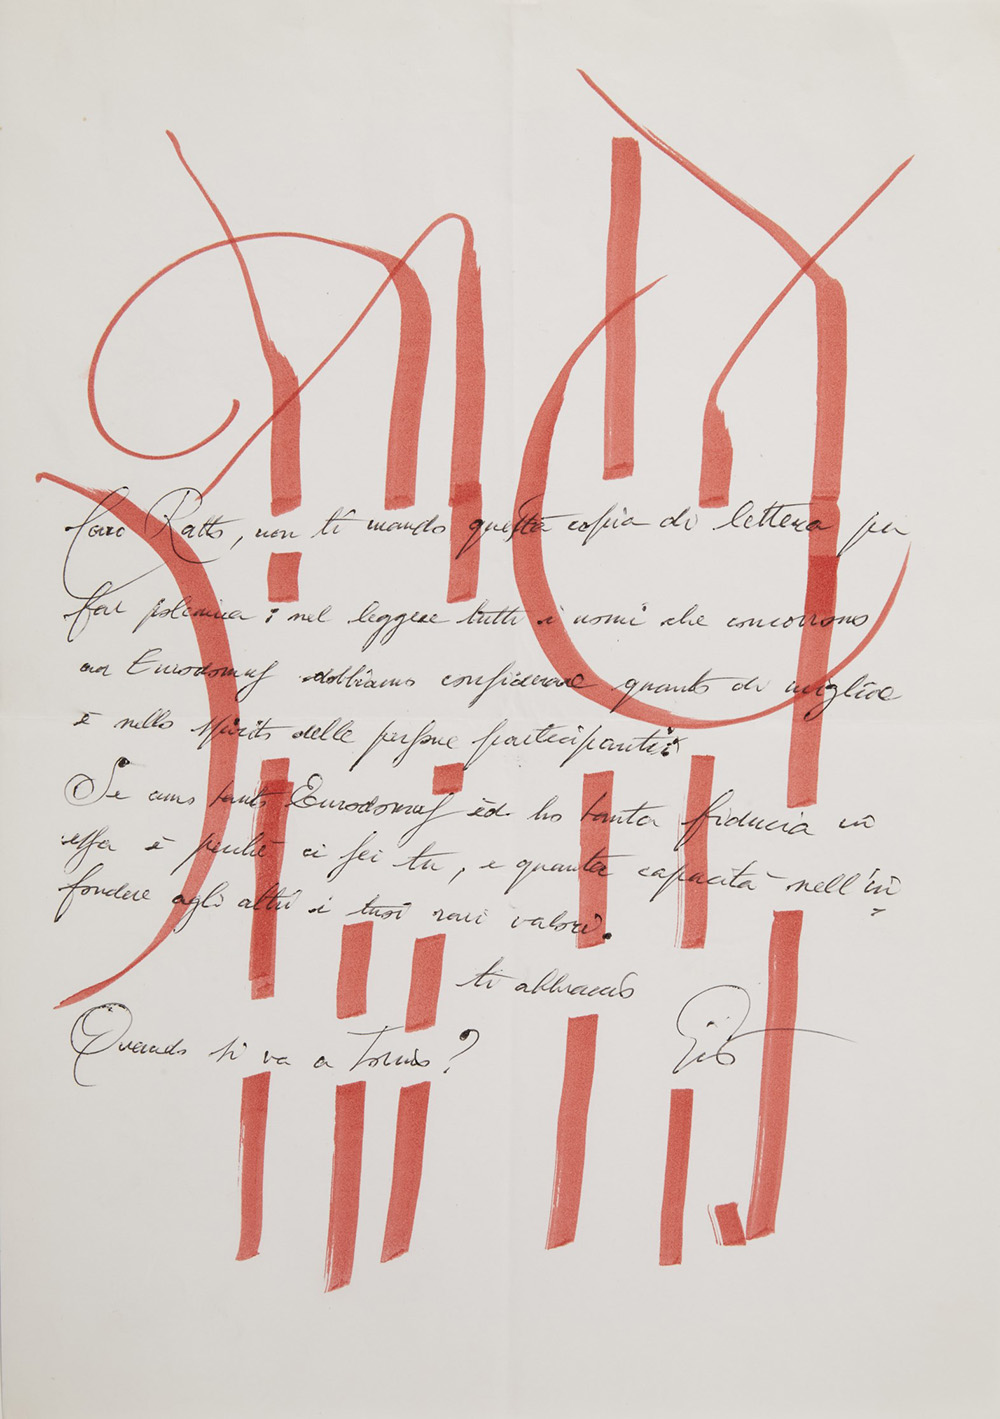 Caro Ratto, non ti mando questa copia di lettera per
far polemica: nel leggere tutti i nomi che concorrono
ad Eurodomus dobbiamo considerare quanto di miglior
è nello spirito delle persone participanti:
Se amo tanto Eurodomus ed ho tanta fiducia in
essa è perchè ci sei tu, e quanta capacità nell'in
fondere agli altri i tuoi rari valori.
ti abbraccio
Quando si va a Torino? Giò